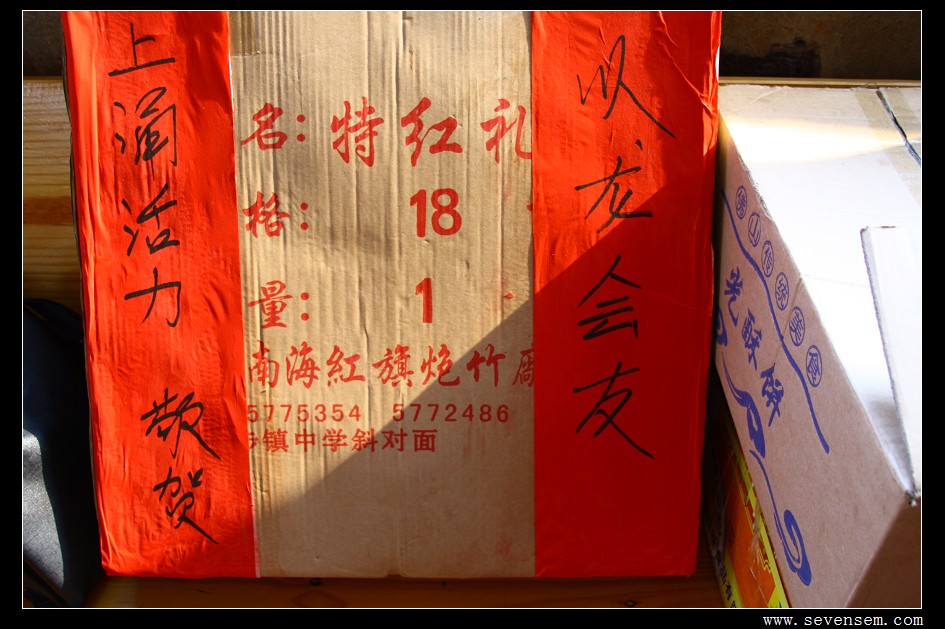 以龙会友
名: 特红礼
格: 18
量: 1
南海红旗炮竹廠
5775354 5772486
镇中学斜对面
上涌活力 敬贺
光酥餅
www.sevensem.com